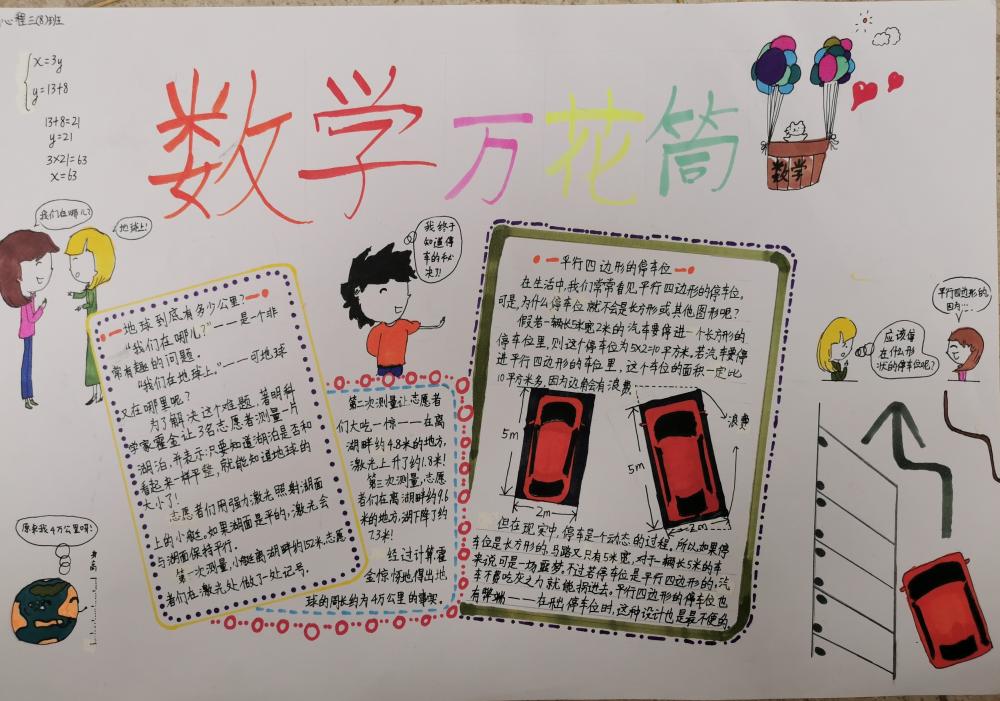 心程三(8)班
x=3y
y=13+8
13+8=21
y=21
3×21=63
x=63
数学万花筒
数学
我们在哪儿?
地球上!
地球到底有多少公里?
“我们在哪儿?”——是个非
常有趣的问题.
“我们在地球上.”——可地球
又在哪里呢?
为了解决这个难题,著明科
学家霍金让3名志愿者测量一片
湖泊,并表示:只要知道湖泊是否和
看起来一样平坠,就能知道地球的
大小了!
志愿者们用强力激光照射湖面
上的小艇。如果湖面是平的,激光会
与湖面保持平行.
第一次测量,小艇离湖畔约152米,志愿
者们在激光处做了处记号.
第二次测量让志愿者
们大吃一惊——在离
湖畔约4.8米的地方,
激光上升了约1.8米!
第三次测量,志愿
者们在离湖畔约9.6
米的地方,湖下降了约
7.3米!
经过计算霍
金惊讶地得出地
球的周长约为4万公里的事实.
我终于
知道停
车的秘
决!
平行四边形的停车位
在生活中,我们常常看见平行四边形的停车位,
可是,为什么停车位就不会是长方形或其他图形呢?
假若一辆长5米宽2米的汽车要停进一个长方形的
停车位里,则这个停车位为5×2=10平方米.若汽车要停
进平行四边形的车位里,这个车位的面积一定比
10平方米多,因为边角会有浪费.
浪费
5m
2m
5m
2m
但在现实中,停车是个动态的过程,所以如果停
车位是长方形的,马路又只有5米宽,对于一辆长5米的车
来说可是一场噩梦.不过若停车位是平行四边形的,汽
车不费吃灰之力就能拐进去.平行四边形的停车位也
有弊端——在私出停车位时,这种设计也是最不便的.
应该停
在什么形
状的停车位呢?
平行四边形的,
因为…
原来我4万公里呀!